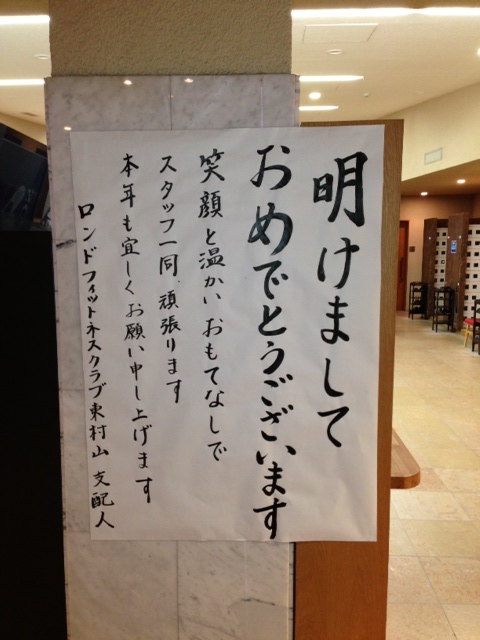 明けまして
おめでとうございます
笑顔と温かいおもてなしで
スタッフ一同 頑張ります
本年も宜しくお願い申し上げます
ロンドフィットネスクラブ東村山 支配人